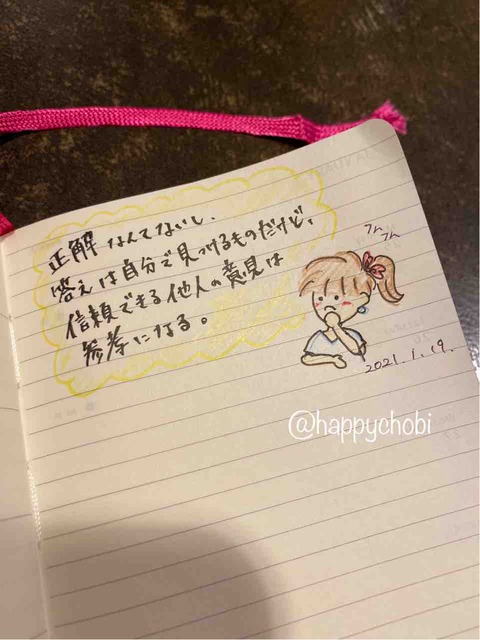 正解なんてないし、
答えは自分で見つけるものだけど、
信頼できる他人の意見は
参考になる。
フムフム
2021.1.19.
@happychobi